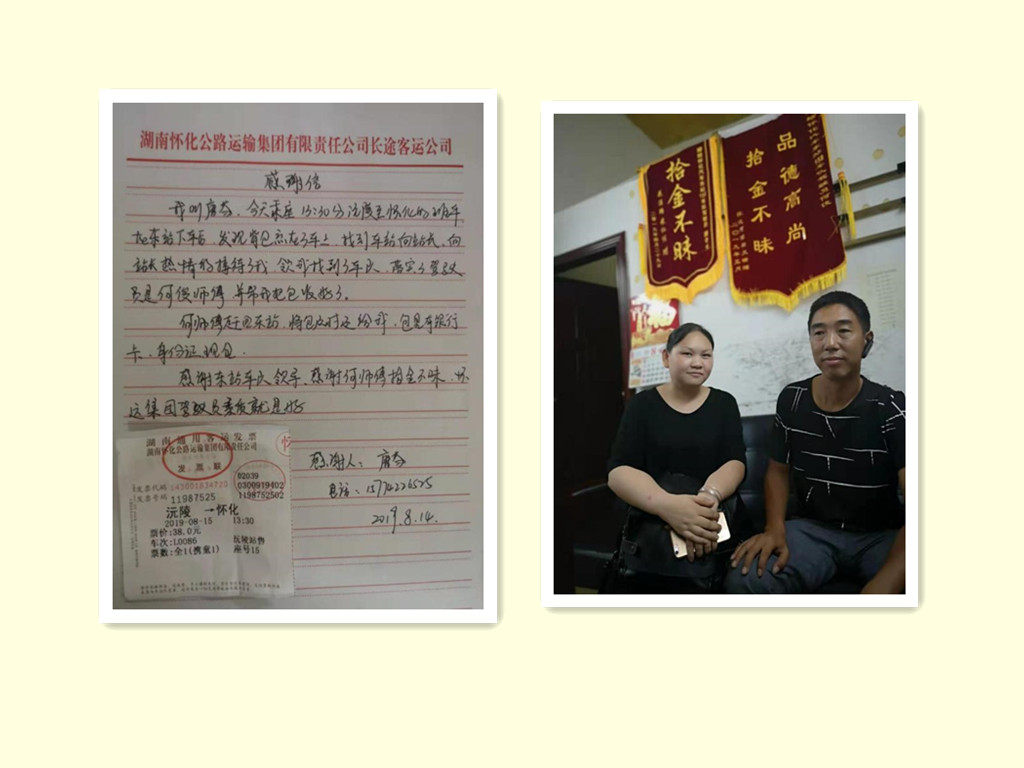 湖南怀化公路运输集团有限责任公司长途客运公司
感谢信
我叫唐, 今天乘座13:30分沅陵至怀化的班车
在东站下车后, 发现背包忘在了车上, 找到车站向站长, 向
站长热情的接待了我, 钦哥找到了车队, 落实了驾驶
员是何俊师傅 并帮我把包收好了。
何师傅赶回东站, 将包及时还给我, 包里有银行
卡、身份证、现金.
感谢东站车队领导, 感谢何师傅拾金不昧, 怀
运集团驾驶员素质就是好
感谢人: 唐
电话: 15774226525
2019.8.14.
湖南通用客运发票
湖南怀化公路运输集团有限责任公司
发票联
发票代码:143001834720
发票号码 11987525
82039
0300919402
1198752502
沅陵 →怀化
2019-08-15 13:30
票价:38.0元
车次:L0086 沅陵站售
票数:全1(携童1) 座号15
拾金不昧
品德高尚
拾金不昧